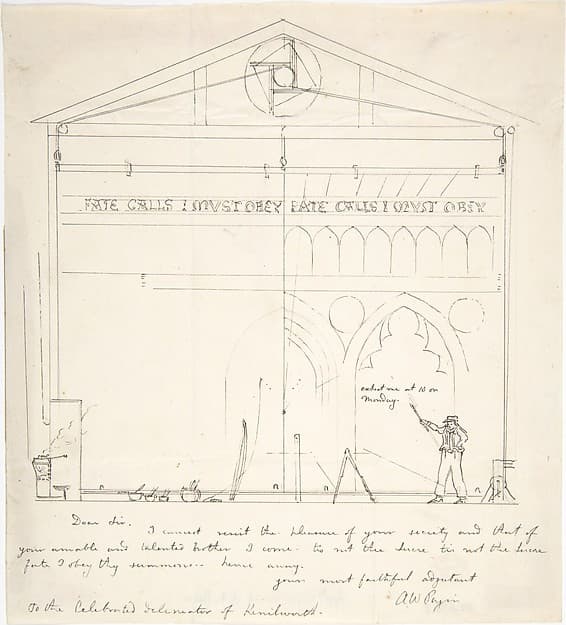 FATE CALLS I MUST OBEY FATE CALLS I MUST OBEY
expect me at 10 on
Monday.
Dear Sir. I cannot resist the pleasure of your society and that of
your amiable and talented brother I come. tis not the tis not the
fate I obey thy summons... hence away.
your most faithful adjutant
A W Pugin
To the Celebrated delineator of Kenilworth.